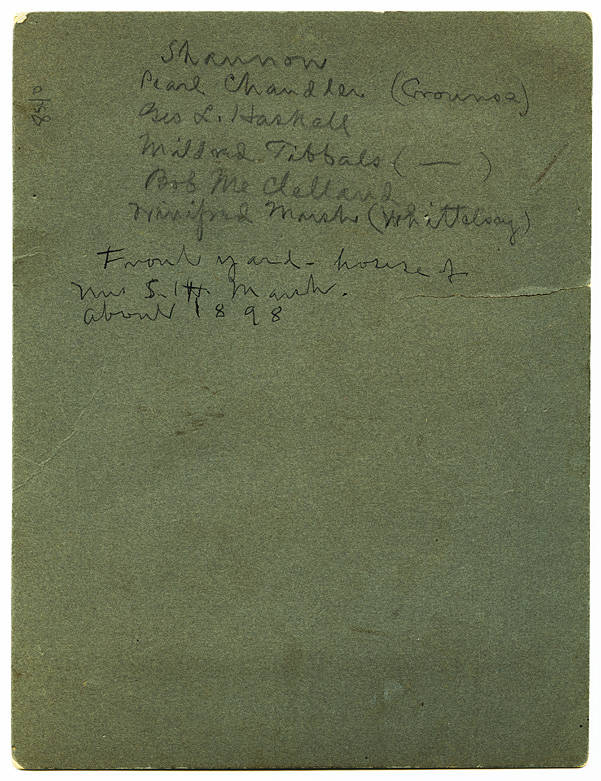 Shannon
Pearl Chandler (Crounse)
Geo L. Haskell
Mildred Tibbals ( — )
Bob McClelland
Winifred Marsh (Whittelsey)
Front yard - house of
Mrs S. H. Marsh.
about 1898